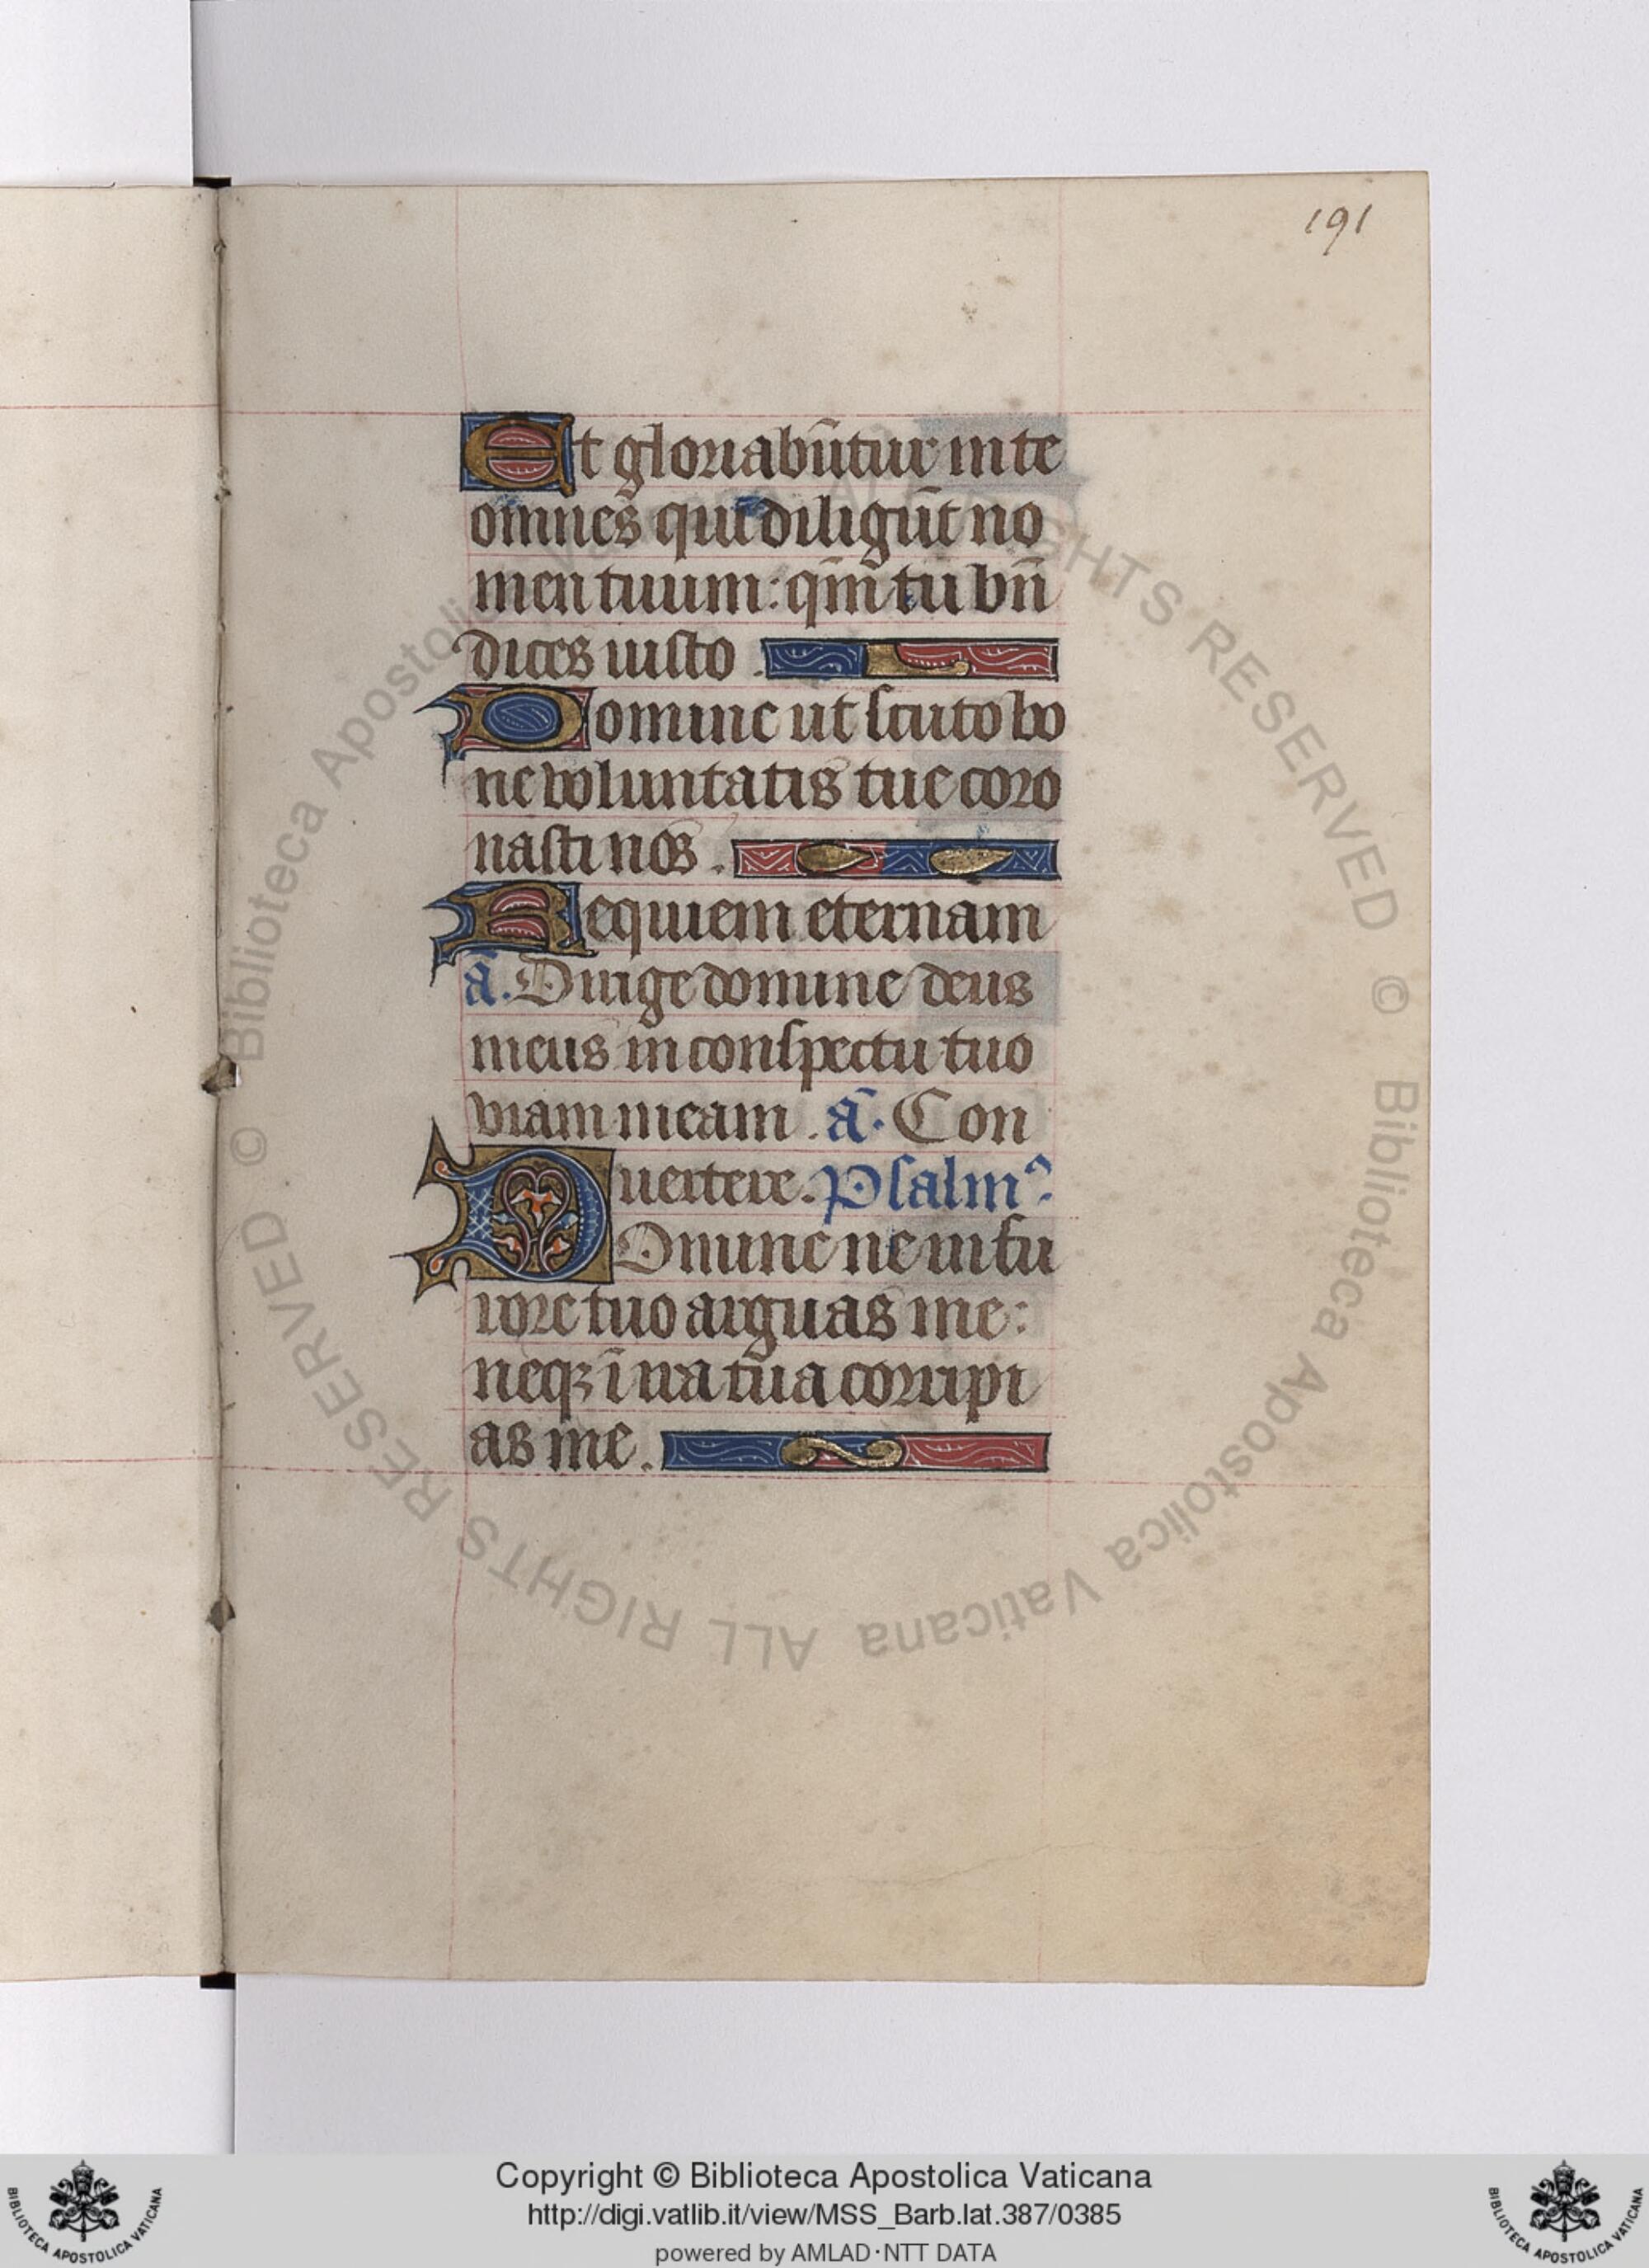 191
Et gloriabūtur in te
omnes qui diligūt no
men tuum: qm̄ tu bn̄
dices iusto.
Domine ut scuto bo
ne voluntatis tue coro
nasti nos.
Requiem eternam
ā. Dirige domine deus
meus in conspectu tuo
viam meam. ā. Con
uertere. Psalmꝰ.
Domine ne in fu
rore tuo arguas me:
neqꝫ ī ira tua corripi
as me.
© Biblioteca Apostolica Vaticana ALL RIGHTS RESERVED
© Biblioteca Apostolica Vaticana ALL RIGHTS RESERVED
Copyright © Biblioteca Apostolica Vaticana
http://digi.vatlib.it/view/MSS_Barb.lat.387/0385
powered by AMLAD·NTT DATA
BIBLIOTECA APOSTOLICA VATICANA
BIBLIOTECA APOSTOLICA VATICANA